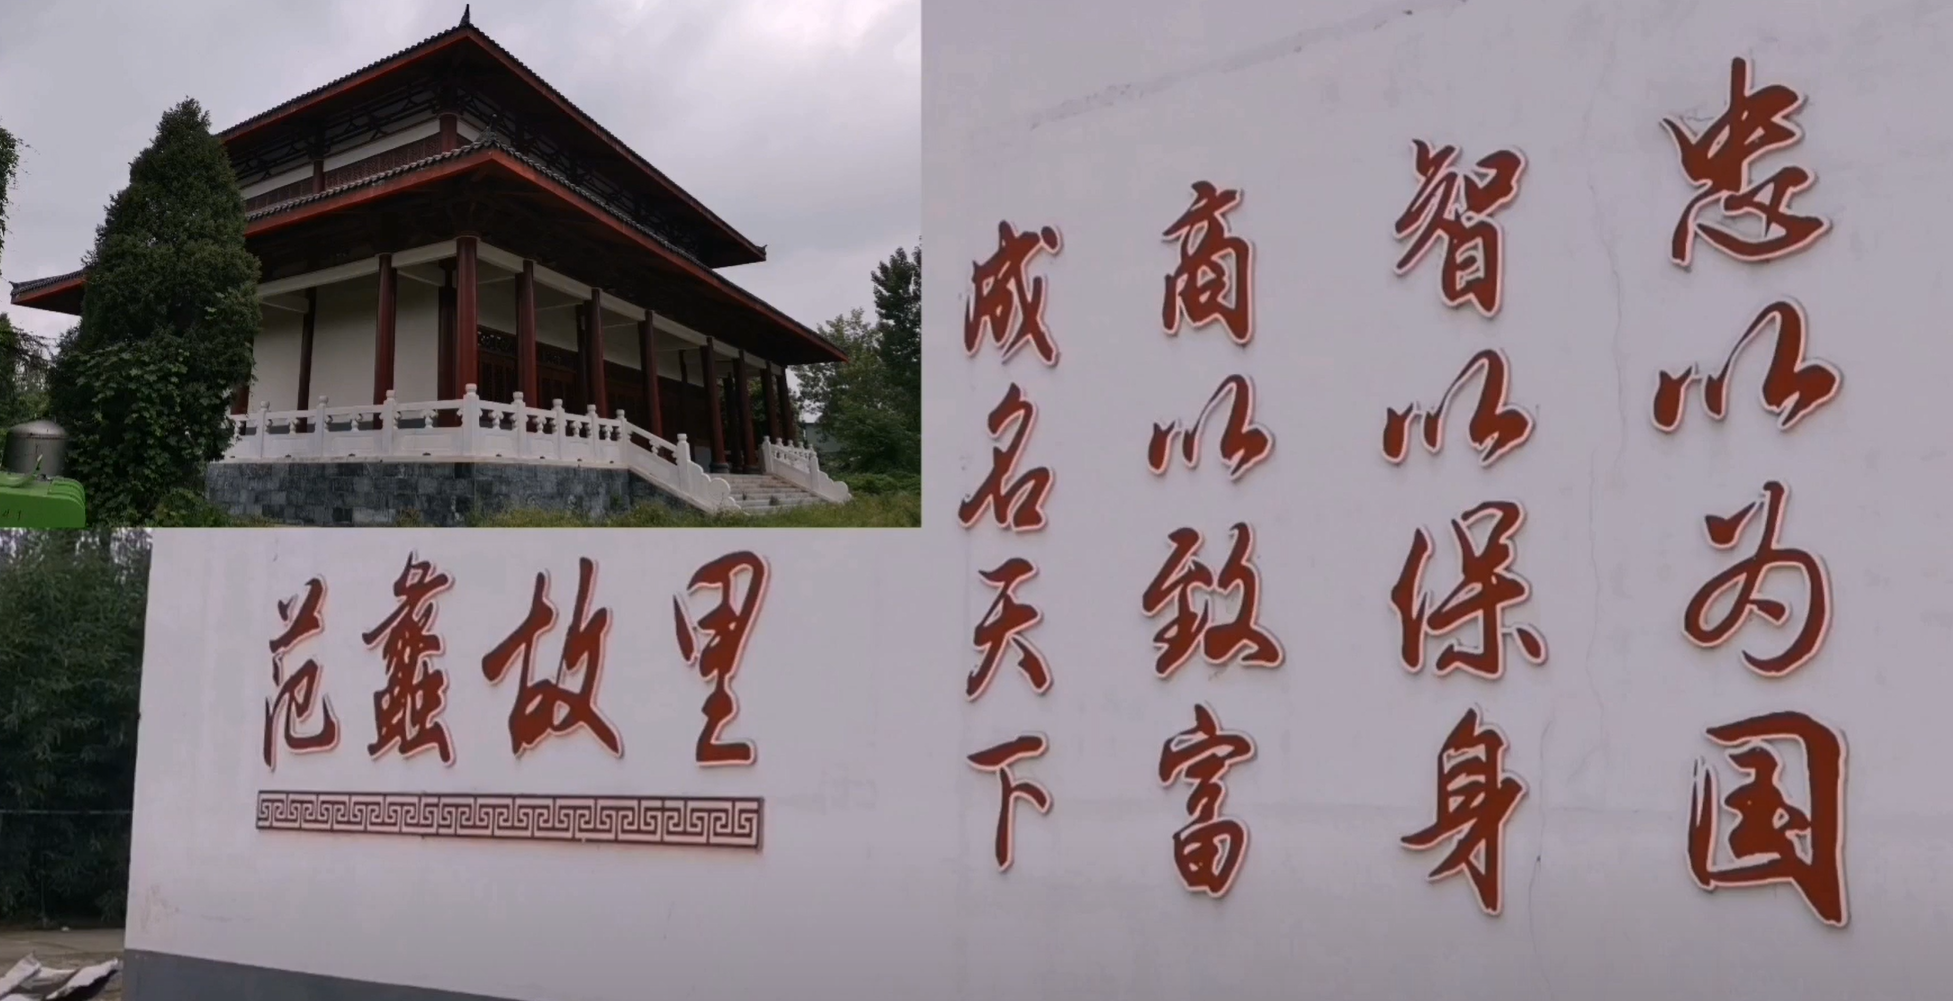 忠以为国
智以保身
商以致富
成名天下
范蠡故里